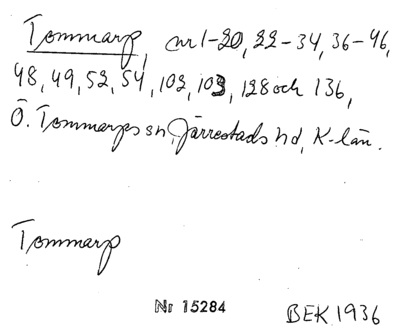 Tommarp, nr 1-20, 22-34, 36-46,
48, 49, 52, 54, 102, 103, 128 och 136,
Ö. Tommarps sn, Järrestads hd, K-län.
Tommarp
Nr 15284
BEK 1936